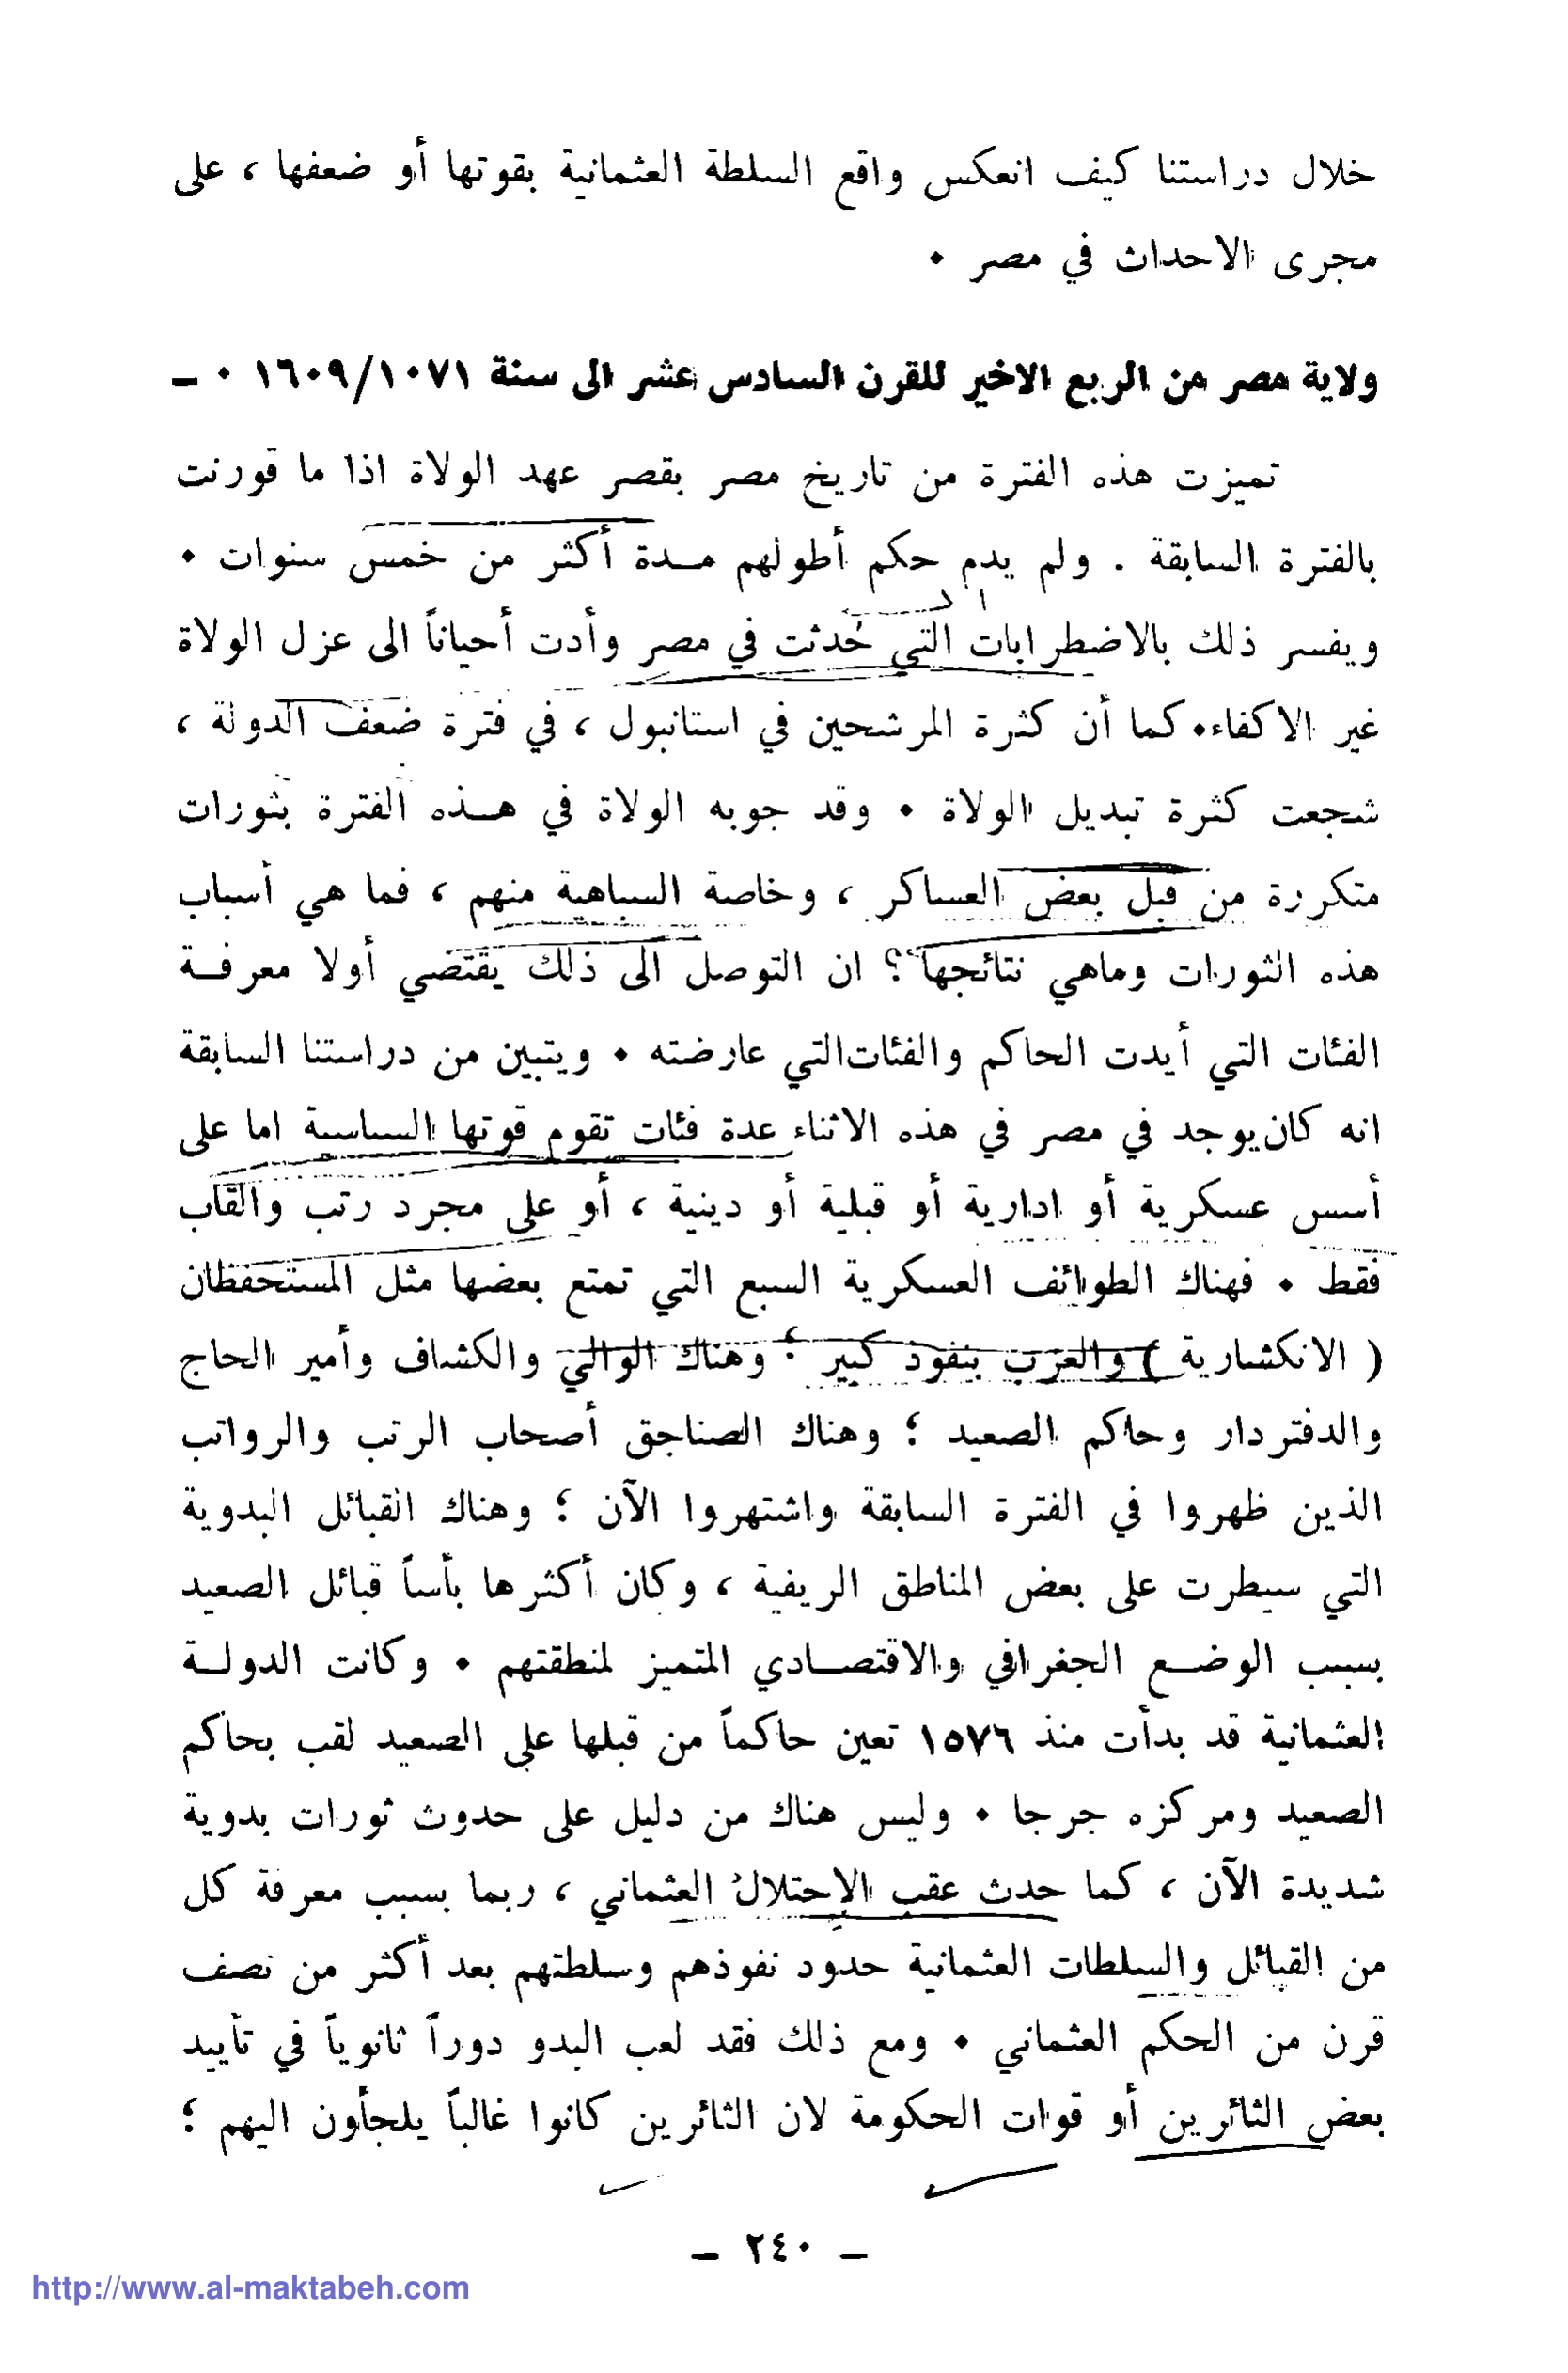 خلال دراستنا كيف انعكس واقع السلطة العثمانية بقوتها أو ضعفها ، على
مجرى الاحداث في مصر ٠
ولاية مصر من الربع الاخير للقرن السادس عشر الى سنة ١٠٧١/١٦٠٩ ٠ ــ
تميزت هذه الفترة من تاريخ مصر بقصر عهد الولاة اذا ما قورنت
بالفترة السابقة . ولم يدم حكم أطولهم مــدة أكثر من خمس سنوات ٠
ويفسر ذلك بالاضطرابات التي حدثت في مصر وأدت أحياناً الى عزل الولاة
غير الاكفاء٠ كما أن كثرة المرشحين في استانبول ، في فترة ضعف الدولة ،
شجعت كثرة تبديل الولاة ٠ وقد جوبه الولاة في هــذه الفترة بثورات
متكررة من قبل بعض العساكر ، وخاصة السباهية منهم ، فما هي أسباب
هذه الثورات وماهي نتائجها ؟ ان التوصل الى ذلك يقتضي أولا معرفــة
الفئات التي أيدت الحاكم والفئات التي عارضته ٠ ويتبين من دراستنا السابقة
انه كان يوجد في مصر في هذه الاثناء عدة فئات تقوم قوتها السياسية اما على
أسس عسكرية أو ادارية أو قبلية أو دينية ، أو على مجرد رتب والقاب
فقط ٠ فهناك الطوائف العسكرية السبع التي تمتع بعضها مثل المستحفظان
( الانكشارية ) والعزب بنفوذ كبير ؛ وهناك الوالي والكشاف وأمير الحاج
والدفتردار وحاكم الصعيد ؛ وهناك الصناجق أصحاب الرتب والرواتب
الذين ظهروا في الفترة السابقة واشتهروا الآن ؛ وهناك القبائل البدوية
التي سيطرت على بعض المناطق الريفية ، وكان أكثرها بأساً قبائل الصعيد
بسبب الوضــع الجغرافي والاقتصــادي المتميز لمنطقتهم ٠ وكانت الدولــة
العثمانية قد بدأت منذ ١٥٧٦ تعين حاكماً من قبلها على الصعيد لقب بحاكم
الصعيد ومركزه جرجا ٠ وليس هناك من دليل على حدوث ثورات بدوية
شديدة الآن ، كما حدث عقب الاحتلال العثماني ، ربما بسبب معرفة كل
من القبائل والسلطات العثمانية حدود نفوذهم وسلطتهم بعد أكثر من نصف
قرن من الحكم العثماني ٠ ومع ذلك فقد لعب البدو دوراً ثانوياً في تأييد
بعض الثائرين أو قوات الحكومة لان الثائرين كانوا غالباً يلجأون اليهم ؛
ــ ٢٤٠ ــ
http://www.al-maktabeh.com